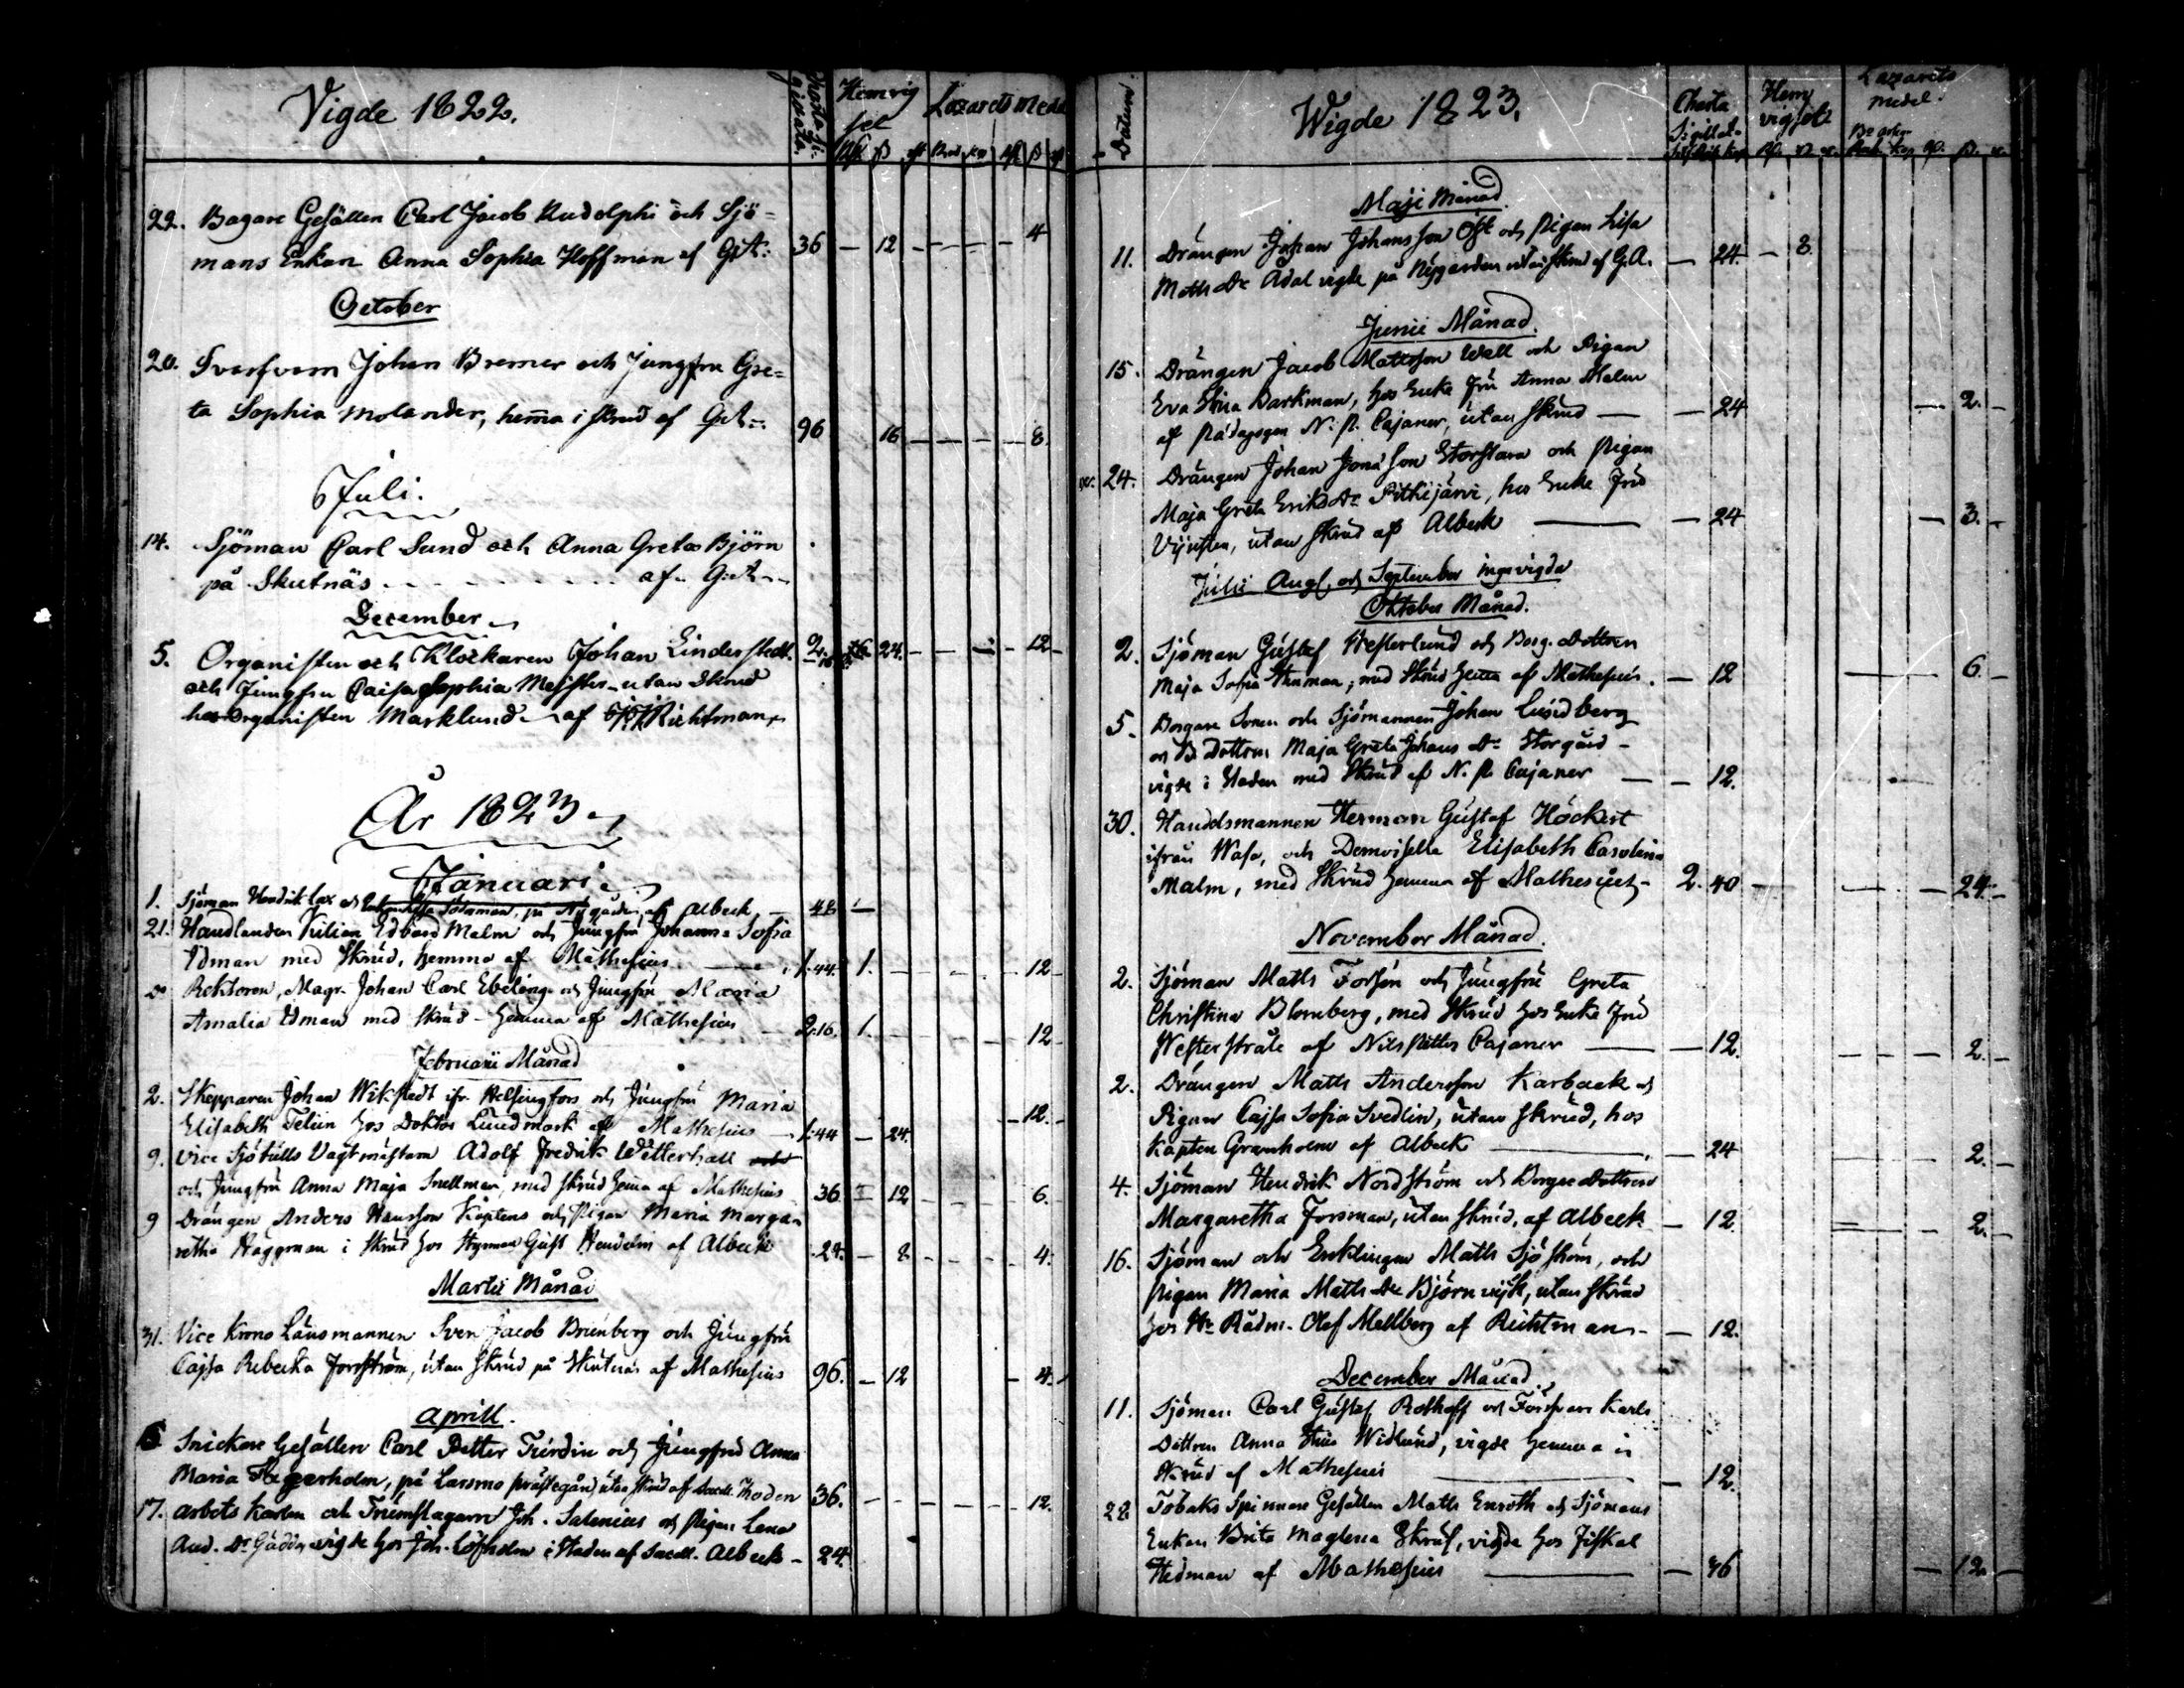 Vigde 1822.
Charta Sigillata. Hemvigsel Lazarets Medel
22. Bagare Gesällen Carl Jacob Rudolphi och Sjö=
mans Enkan Anna Sophia Hoffman af G:A: 36 — 12 — — — — 4
October
20. Svarfvarn Johan Bremer och Jungfru Gre=
ta Sophia Molander, hema i skrud af G:A: 96 16 — — — — 8
Juli.
14. Sjöman Carl Sund och Anna Greta Björn
på Skutnäs - - - - - af G:A:
December
5. Organisten och Klockaren Johan Linderstedt. 2. 24. — — — 12
och Jungfru Caisa Sophia Meister utan Skrud
hos Organisten Marklund af Richtman
År 1823
Januari
1. Sjöman Hendrik Lax och på Nygården af Albeck — 48 —
21. Handlanden Kilian Edvard Malm och Jungfru Johanna Sofia
Edman med Skrud, hemma af Mathesius — 1.44. 1. — — — 12
Do Rektoren, Magr. Johan Carl Ebeling och Jungfru Maria
Amalia Edman med Skrud - hemma af Mathesius — 2.16. 1. — 12
Februarii Månad
2. Skepparen Johan Wikstedt ifr. Helsingfors och Jungfru Maria
Elisabeth Telin hos Doktor Lindmark af Mathesius — 1.44 — 24. — 12.
9. Vice Sjötulls Vagtmästarn Adolf Fredrik Wetterhall
och Jungfru Anna Maja Snellman, med skrud hema af Mathesius 36. 12 — — 6.
9 Drängen Anders Hansson Kaptens och Pigan Maria Marga=
retha Häggman i Skrud hos Styrman Gust Hendelin af Albeck 24. — 8. — — 4.
Martii Månad
31. Vice Krono Länsmannen Sven Jacob Brunberg och Jungfru
Cajsa Rebecka Forsström, utan skrud på Skutnäs af Mathesius 96. — 12 — 4.
Aprill.
6 Snickare Gesällen Carl Petter Turdin och Jungfru Anna
Maria Hagerholm, på Larsmo prästegård utan skrud af Sacell. Thoden 36. — — — 12.
17. Arbets Karlen och Salenius och Pigan Lena
And. Dr Gädda vigde hos Joh. Löfholm i Staden af Sacell. Albeck — 24.
Datum Wigde 1823. Charta Sigillat. Hemvigsel Lazarets medel.
Maji Månad.
11. Drängen Johan Johansson Öst och Pigan Lisa
Matts Dr Ådal vigde på Nygården utan skrud af G.A. — 24. — 8.
Junii Månad.
15. Drängen Jacob Mattsson Wall och Pigan
Eva Stina Barkman, hos Enke fru Anna Malm
af Pädagogen N. P. Cajaner, utan skrud — — 24 — 2. —
24. Drängen Johan Jonasson Storstara och Pigan
Maja Greta Eriks Dr Pitkäjärvi, hos Enke Fru
utan skrud af Albeck — — 24 — 3. —
Julii Aug. och September inga vigda
Oktober Månad.
2. Sjöman Gustaf Westerlund och Borg. Dottren
Maja Sofia Stenman, med Skrud hema af Mathesius. — 12 — 6. —
5. Borgare Sonen och Sjömannen Johan Lundberg
och B. Dottren Maja Greta Johans Dr Storgård —
vigde i Staden med Skrud af N. P. Cajaner — — 12.
30. Handelsmannen Herman Gustaf Höckert
ifrån Wasa, och Demoiselle Elisabeth Carolina
Malm, med Skrud hemma af Mathesius — 2. 40 — — — 24. —
November Månad.
2. Sjöman Matts Forsén och Jungfru Greta
Christina Blomberg, med Skrud hos Enke Fru
Westerstråle af Nils Petter Cajaner — — 12. — — — 2. —
2. Drängen Matts Andersson Karback och
Pigan Cajsa Sofia Svedlin, utan skrud, hos
Kapten Granholm af Albeck — — 24 — 2. —
4. Sjöman Hendrik Nordström och Borgare Dottren
Margaretha Forsman, utan skrud, af Albeck — 12. — 2. —
16. Sjöman och Enklingen Matts Sjöström, och
Pigan Maria Matts Dr Björnvijk, utan Skrud
hos Hr Rådm. Olof Mellberg af Richtman — — 12.
December Månad.
11. Sjöman Carl Gustaf Rothoff och Försvars Karls
Dottren Anna Stina Widlund, vigde hemma i
Skrud af Mathesius — — 12.
22. Tobaks Spinnare Gesällen Matts Enroth och Sjömans
Enkan Brita Maglena Skruf, vigde hos Fiskal
Hedman af Mathesius — — 36 — 12 —